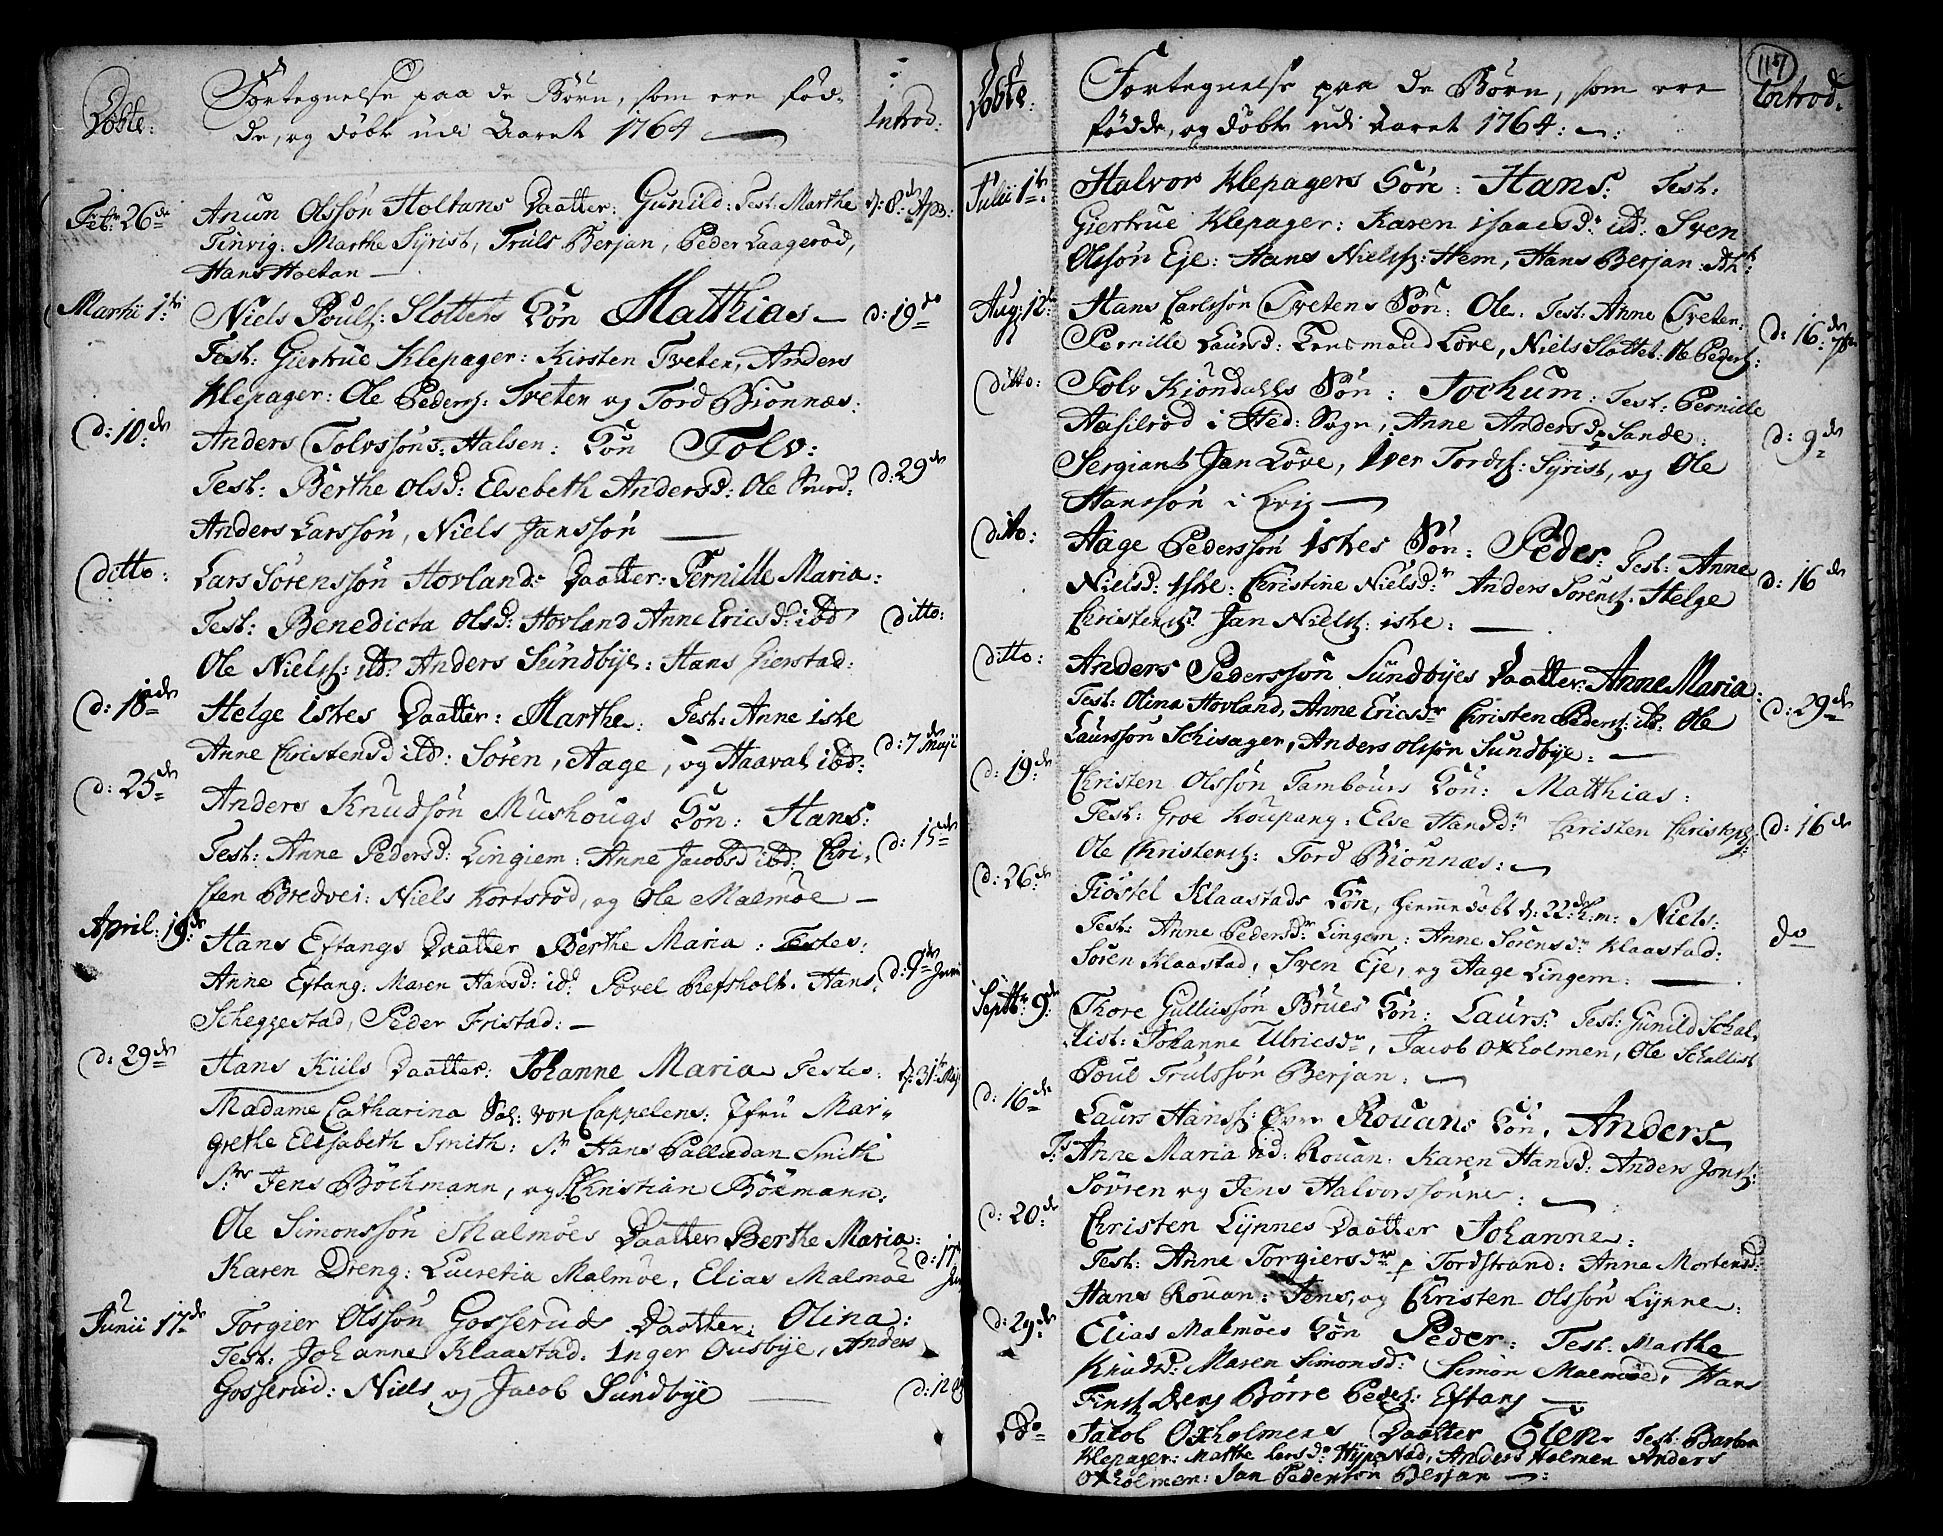 Døbte:
Fortegnelse paa de Børn, som ere fød-
de, og døbte udi Aaret 1764
Introd:
Febr: 26de
Anun Olssøn Holtans Daatter: Gunild: Test: Marthe
d: 8de Apr:
Tinvig: Marthe Syrist, Truls Berjan, Peder Laagerød,
Hans Holtan
Martii 1te
Niels Pouls: Slottets Søn Matthias
d: 19de
Test: Giertrue Klepager: Kirsten Tveten, Anders
Klepager: Ole Peders: Tveten og Tord Bionnæs:
d: 10de
Anders Tolvssøns: Halsen: Søn Tolv:
Test: Berthe Olsd: Elsebeth Andersd: Ole
d: 29de
Anders Larssøn, Niels Janssøn
ditto:
Lars Sørenssøn Hovland: Daatter: Pernille Maria:
Test: Benedicta Olsd: Hovland Anne Ericsd: ibd
ditto:
Ole Niels: ibd. Anders Sundbye: Hans Gierstad:
d: 18de
Helge Iskes Daatter: Marthe: Test: Anne Iske
Anne Christensd ibd: Søren, Aage, og Haaval ibd:
d: 7de Maji
d: 25de
Anders Knudsøn Muskougs Søn: Hans:
Test: Anne Pedersd: Lingiem: Anne Jacobsd ibd: Chri-
d: 15de
sten Bredvei: Niels Kortsrød, og Ole Malmøe
April: 19de
Hans Eftangs Daatter Berthe Maria: Testes:
Anne Eftang: Maren Hansd: ibd: Povel Refsholt. Hans
Scheggestad, Peder Fristad:
d: 29de
Hans Kiils Daatter: Johanne Maria Testes:
d: 31te Maji
Madame Catharina Sal: von Cappelens: Jfru Mar-
grethe Elisabeth Smith: Sr Hans Palludan Smith
Sr Jens Böchmann, og Christian Böhmann:
Ole Simonssøn Malmøes Daatter Berthe Maria:
d: 17
Karen Dreng: Lucretia Malmøe, Elias Malmøe
Junii 17de
Torgier Olssøn Gosseruds Daatter: Olina:
Test: Johanne Klaastad: Inger Ousbye, Anders
Gosserud: Niels og Jacob Sundbye
d: 12
Døbte:
Fortegnelse paa de Børn, som ere
fødde, og døbte udi Aaret 1764:
Introd:
117
Julii 1te
Halvor Klepagers Søn: Hans: Test:
Giertrue Klepager: Karen Isaacsd: ibd: Sven
Olssøn Eje: Hans Niels: Hem, Hans Berjan
Aug: 12te
Hans Carlssøn Tvetens Søn: Ole. Test: Anne Tveten:
Pernille Laursd: Lensmand Løve, Niels Slottet: Ole Peders:
d: 16de 7br
ditto:
Tolv Kiøndahls Søn: Jochum: Test: Pernille
Aasilrød i Hed: Sogn, Anne Andersd Sande:
d: 9de
Sergiant Jan Løve, Iver Tords: Syrist, og Ole
Hanssøn i Lvig
ditto:
Aage Pederssøn Iskes Søn: Peder: Test: Anne
Nielsd: Iske: Christine Nielsdr Anders Sørens: Helge
d: 16de
Christens: Jan Niels: iske:
ditto:
Anders Pederssøn Sundbyes Daatter: Anne Maria:
Test: Olina Hovland, Anne Ericsdr Christen Peders: ibd: Ole
d: 29de
Laurssøn Schisager, Anders Olssøn Sundbye:
d: 19de
Christen Olssøn Tambours Søn: Matthias:
Test: Groe Koupang: Else Hansdr Christen Christophs:
d: 16de
Ole Christens: Tord Bionnæs:
d: 26de
Tiøstel Klaastads Søn, hjemmedøbt d: 22de h.m: Niels:
Test: Anne Pedersdr Lingem: Anne Sørensdr Klaastad:
do
Søren Klaastad, Sven Eje, og Aage Lingem:
Septbr: 9de
Thore Gullussøn Brues Søn: Laurs: Test: Gunild Schal-
list: Johanne Ulricsdr, Jacob Oxholmen, Ole Schallist
Poul Trulssøn Berjan:
d: 16de
Laurs Hanss: Øvre Rouans Søn, Anders
Ts Anne Maria ibd: Rouan: Karen Hansd: Anders Jons:
Søvren og Jens Halvorssønner:
d: 20de
Christen Lynnes Daatter Johanne:
Test: Anne Torgiersdr p Tordstrand: Anne Mortensd:
Hans Rouan: Jens, og Christen Olssøn Lynne:
d: 29de
Elias Malmøes Søn Peder: Test: Marthe
Knudsd: Maren Simonsd: Simon Malmøe, Hans
Børre Peders: Eftang
do
Jacob Oxholmens Daatter Elen. Test: Barbra
Klepager: Marthe Larsdr Hyppestad, Anders Holmen Anders
Oxholmen: Jan Pederssøn Berjan